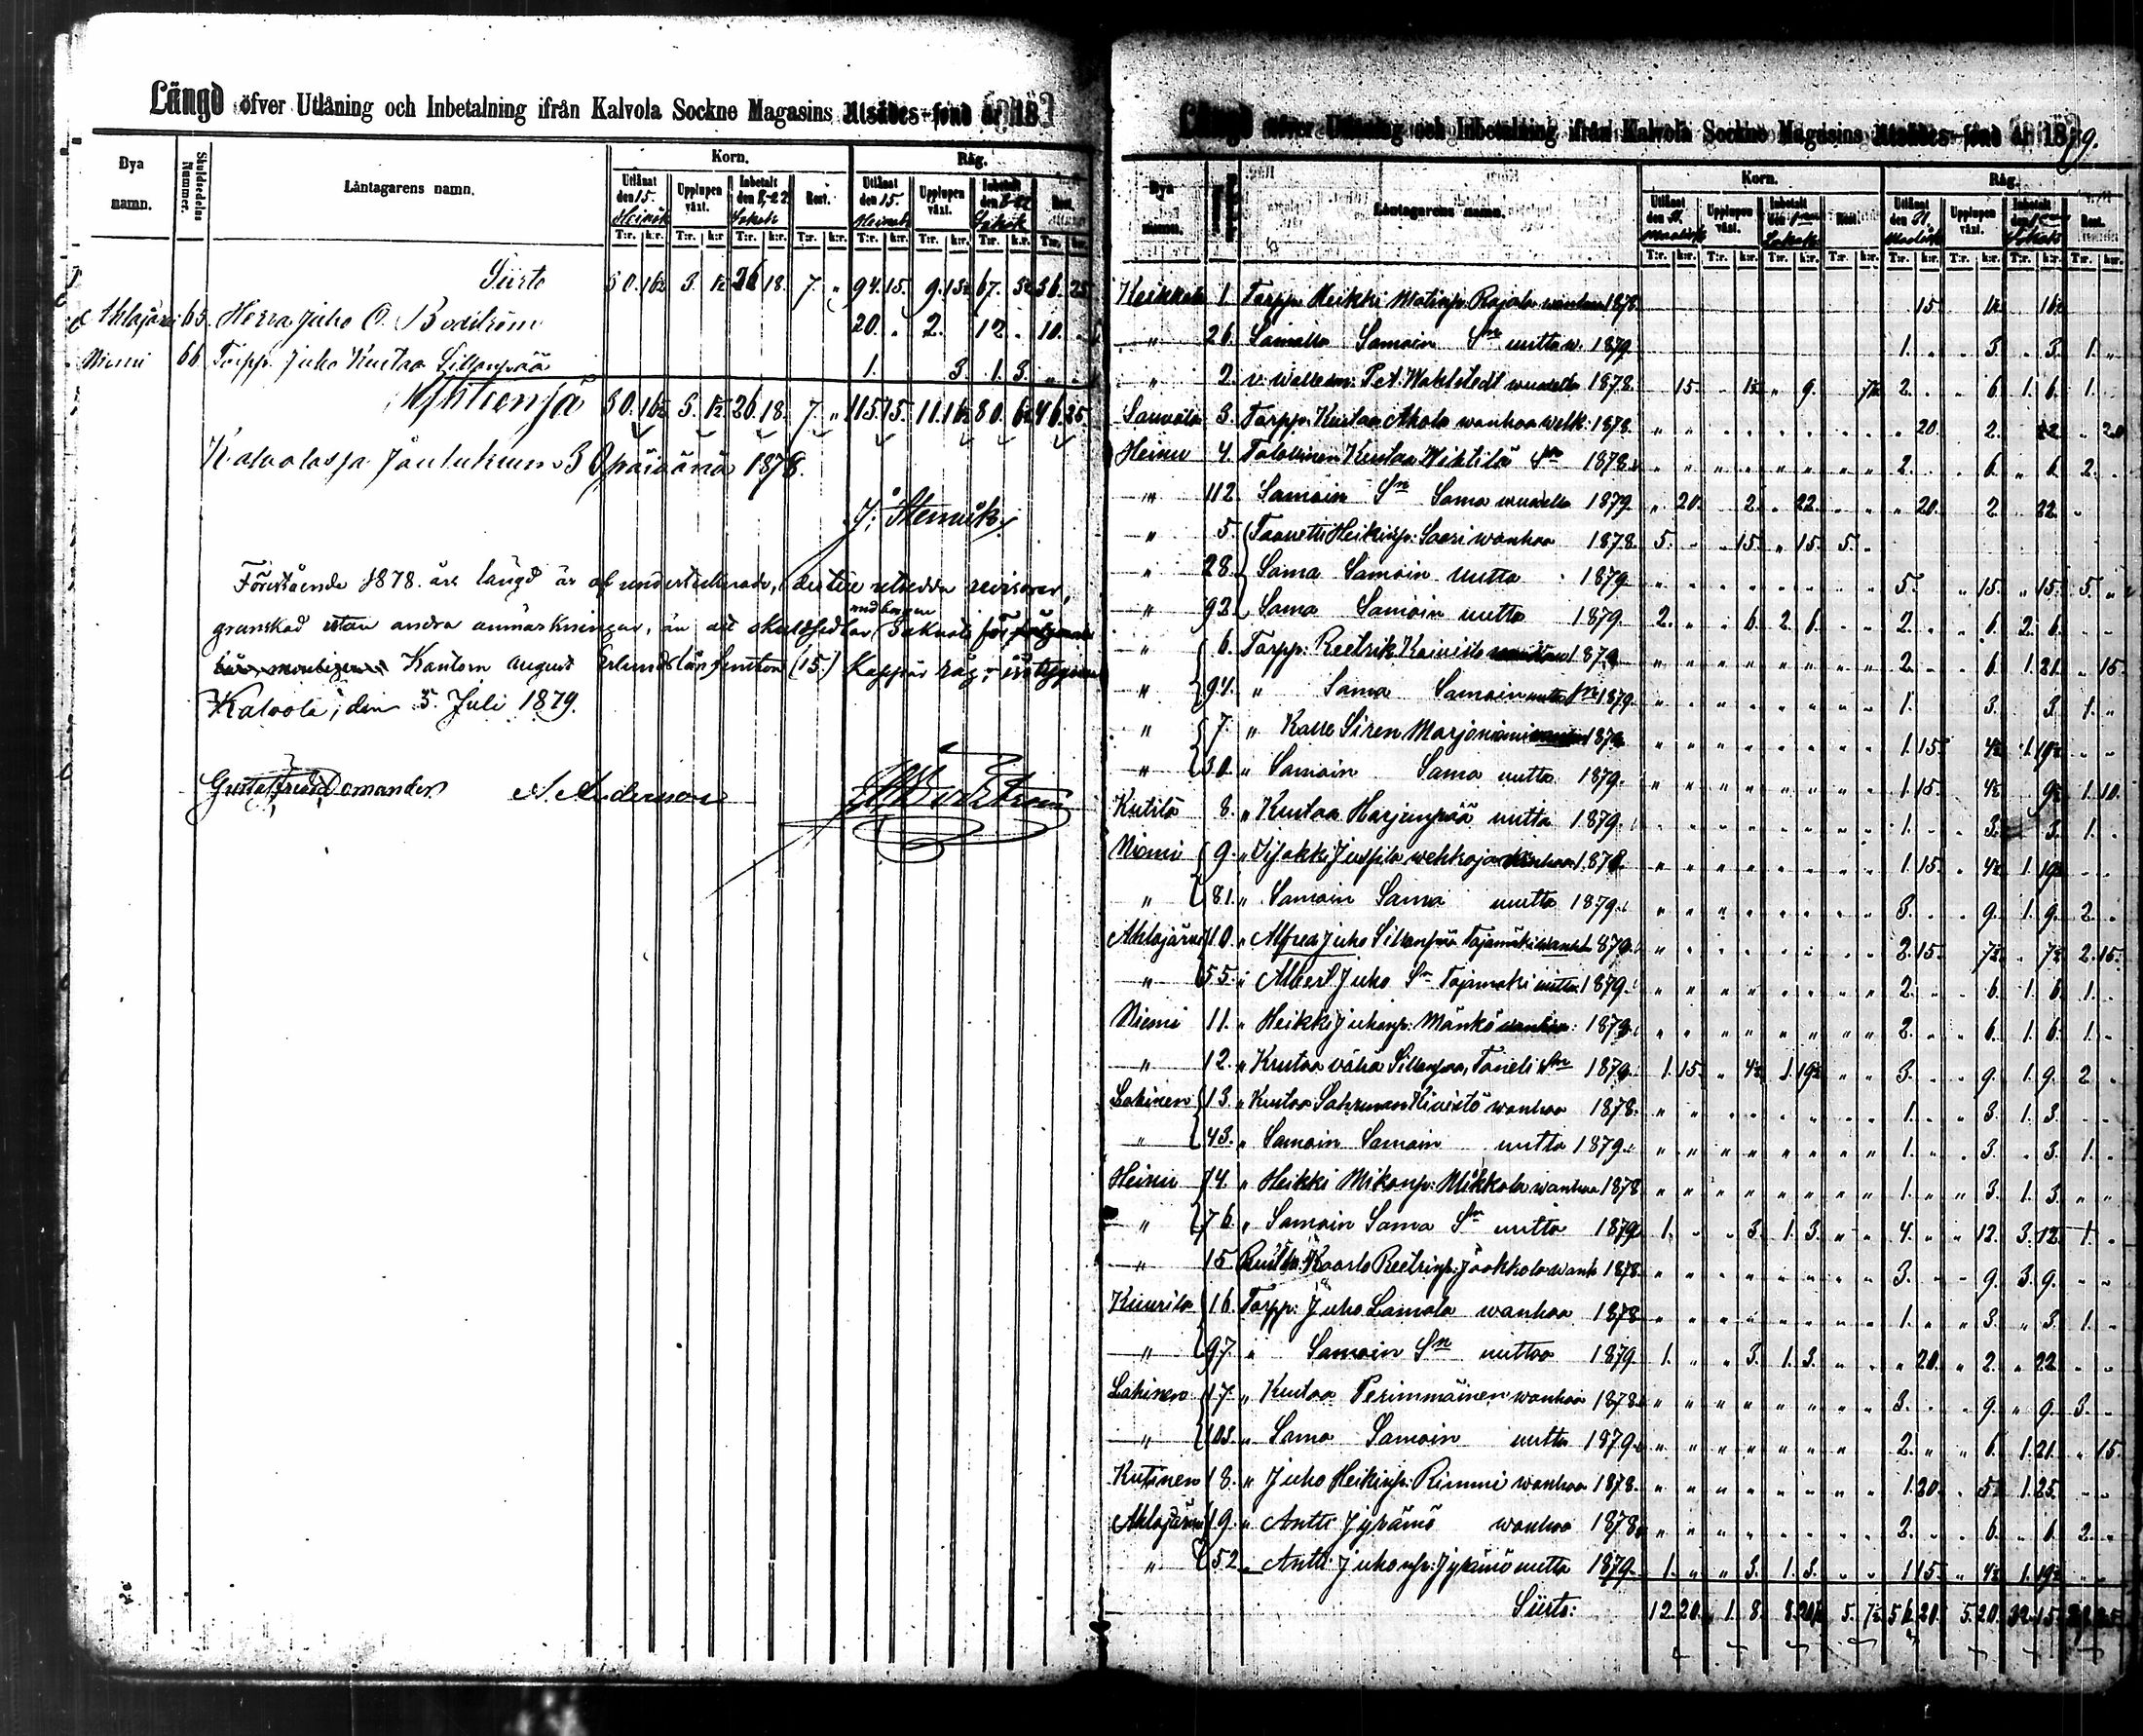 Längd öfver Utlåning och Inbetalning ifrån Kalvola Sockne Magasins Utsädes-fond år 18
Bya namn. Skuldsedelns Nummer. Låntagarens namn. Korn. Råg.
Utlånat den 15. Heinäk Upplupen växt. Inbetalt den 8,-22 Lokak Rest. Utlånat den 15. Heinäk Upplupen växt. Inbetalt den 8-22 Lokak Rest.
T:r. k:r. T:r. k:r. T:r. k:r. T:r. k:r. T:r. k:r. T:r. k:r. T:r. k:r. T:r. k:r.
Siirto 30. 16½ 3. 1½ 26 18. 7. „ 94. 15. 9. 13½ 67. 3½ 36. 25
Ahlajärvi 65. Herra Juho O. Bodström 20. „ 2. 12 „ 10. „
Niemi 66 Torpp. Juho Kustaa Sillanpää 1. 3. 1. 3. „ „
Yhtensä 30. 16½ 3. 1½ 26. 18. 7. „ 115. 15. 11. 16½ 80. 6½ 46. 25.
Kalvolassa Joulukuun 30 päivänä 1878.
Förestående 1878 års längd är af undertecknade, dertill utsedda revisorer,
granskad utan andra anmärkningar, än att skuldsedlar med borgen saknats för
Kantorn August Erlunds lån femton (15.) kappar råg.
Kalvola, den 5. Juli 1879.
Gustaf Fredr. Domander A. Anderson
Längd öfver Utlåning och Inbetalning ifrån Kalvola Sockne Magasins Utsädes-fond år 1879.
Bya namn. Låntagarens namn. Korn. Råg.
Utlånat den 31. Maalisk Upplupen växt. Inbetalt den 1 Lokak Rest. Utlånat den 31 Maalisk Upplupen växt. Inbetalt den 1 Lokak Rest.
T:r. k:r. T:r. k:r. T:r. k:r. T:r. k:r. T:r. k:r. T:r. k:r. T:r. k:r. T:r. k:r.
Keikkala 1. Torpp. Heikki Matinp. Rajala wanhaa 1878 15. 1½ 16½
„ 26. Samalla Samain Sn uutta w. 1879 1. „ „ 3. „ 3. 1. „
„ 2. v. wallesm. Pet. Wahlstedt wuodelta 1878. 15. „ 1½ „ 9. 7½ 2. „ „ 6 1. 6 1.
Sauvala 3. Torpp. Kustaa Ahola wanhaa welk. 1878. „ 20. 2. 22. „ 20
Heinu 4. Talollinen Kustaa Wihtilä Sn 1878. 2. „ „ 6. „ 6 2. „
„ 112. Samain Sn Sama wuodella 1879. „ 20. 2. „ 22. „ 20. 2. 22. „
„ 5. Taavetti Heikinp. Saari wanhaa 1878. 5. „ „ 15. „ 15. 5. „
„ 28. Sama Samain uutta 1879 5. „ 15. „ 15. 5. „
„ 92. Sama Samain uutta 1879 2. „ 6 2. 6. „ „ 2. „ 6. 2. 6. „ „
„ 6. Torpp. Reetrik Koivisto 1879 2. „ 6. 1. 21. „ 15.
„ 94. „ Sama Samain uutta Sn 1879. 1. 3. 3. 1. „
„ 7. „ Kalle Siren Marjoniemi 1879 1. 15. 4½ 1. 19½
„ 30. „ Samain Sama uutta 1879. 1. 15. 4½ 9½ 1. 10.
Kutila 8. „ Kustaa Harjunpää uutta 1879. 1. „ 3. 3. 1. „
Niemi 9. „ Iisakki Juspila wehkoja wanhaa 1878. 1. 15. „ 4½ 1. 19½ „
„ 81. „ Samain Sama uutta 1879. 3. „ 9. 1. 9. 2. „
Ahlajärvi 10. „ Alfred Juho Sillanpää Tajamäki 1879. 2. 15. 7½ „ 7½ 2. 15.
„ 55. „ Albert Juho Sn Tajamäki uutta 1879. 2. „ 6. 1. 6. 1. „
Niemi 11. „ Heikki Juhanp. Mänkö wanhaa: 1879. 2. „ 6. 1. 6. 1. „
„ 12. „ Kustaa vähä Sillanpää, Taneli Sn 1879. 1. 15. „ 4½ 1. 19½ „ „ 3. „ 9. 1. 9. 2. „
Lahinen 13. „ Kustaa Sahrman Kivistö wanhaa 1878. 1. „ 3. 1. 3. „
„ 43. „ Samain Samain uutta 1879. 1. „ 3. „ 3. 1. „
Heinu 14. „ Heikki Mikonp. Mikkola wanhaa 1878 1. „ 3. 1. 3. „ „
„ 76. „ Samain Sama Sn uutta 1879 1. „ „ 3. 1. 3. „ „ 4. „ „ 12. 3. 12. 1. „
„ 15. Kaarlo Reetrinp. Jaakkola wanh. 1878. 3. „ 9. 3. 9. „ „
Kuurila 16. Torpp: Juho Lamala wanhaa 1878 1. „ „ 3. „ 3. 1. „
„ 97. „ Samain Sn uuttaa 1879 1. „ „ 3. 1. 3. „ „ „ 20. „ 2. „ 22. „ „
Lahinen 17. „ Kustaa Perimmäinen wanhaa 1878. 3. „ 9. „ 9. 3. „
„ 103. „ Sama Samain uutta 1879. 2. „ „ 6. 1. 21. „ 15.
Kutinen 18. „ Juho Heikinp. Rimmi wanhaa 1878. 1. 20. „ 5. 1. 25. „
Ahlajärvi 19. „ Antti Jyrämö wanhaa 1878. 2. „ 6. „ 6. 2. „
„ 52. „ Antti Juhonp. Jyrämö uutta 1879. 1. „ „ 3. 1. 3. „ „ 1. 15. „ 4½ 1. 19½ „ „
Siirto: 12. 20. „ 1. 8. 8. 20½ 5. 7½ 56. 20. 5. 20. 32. 15. 25.